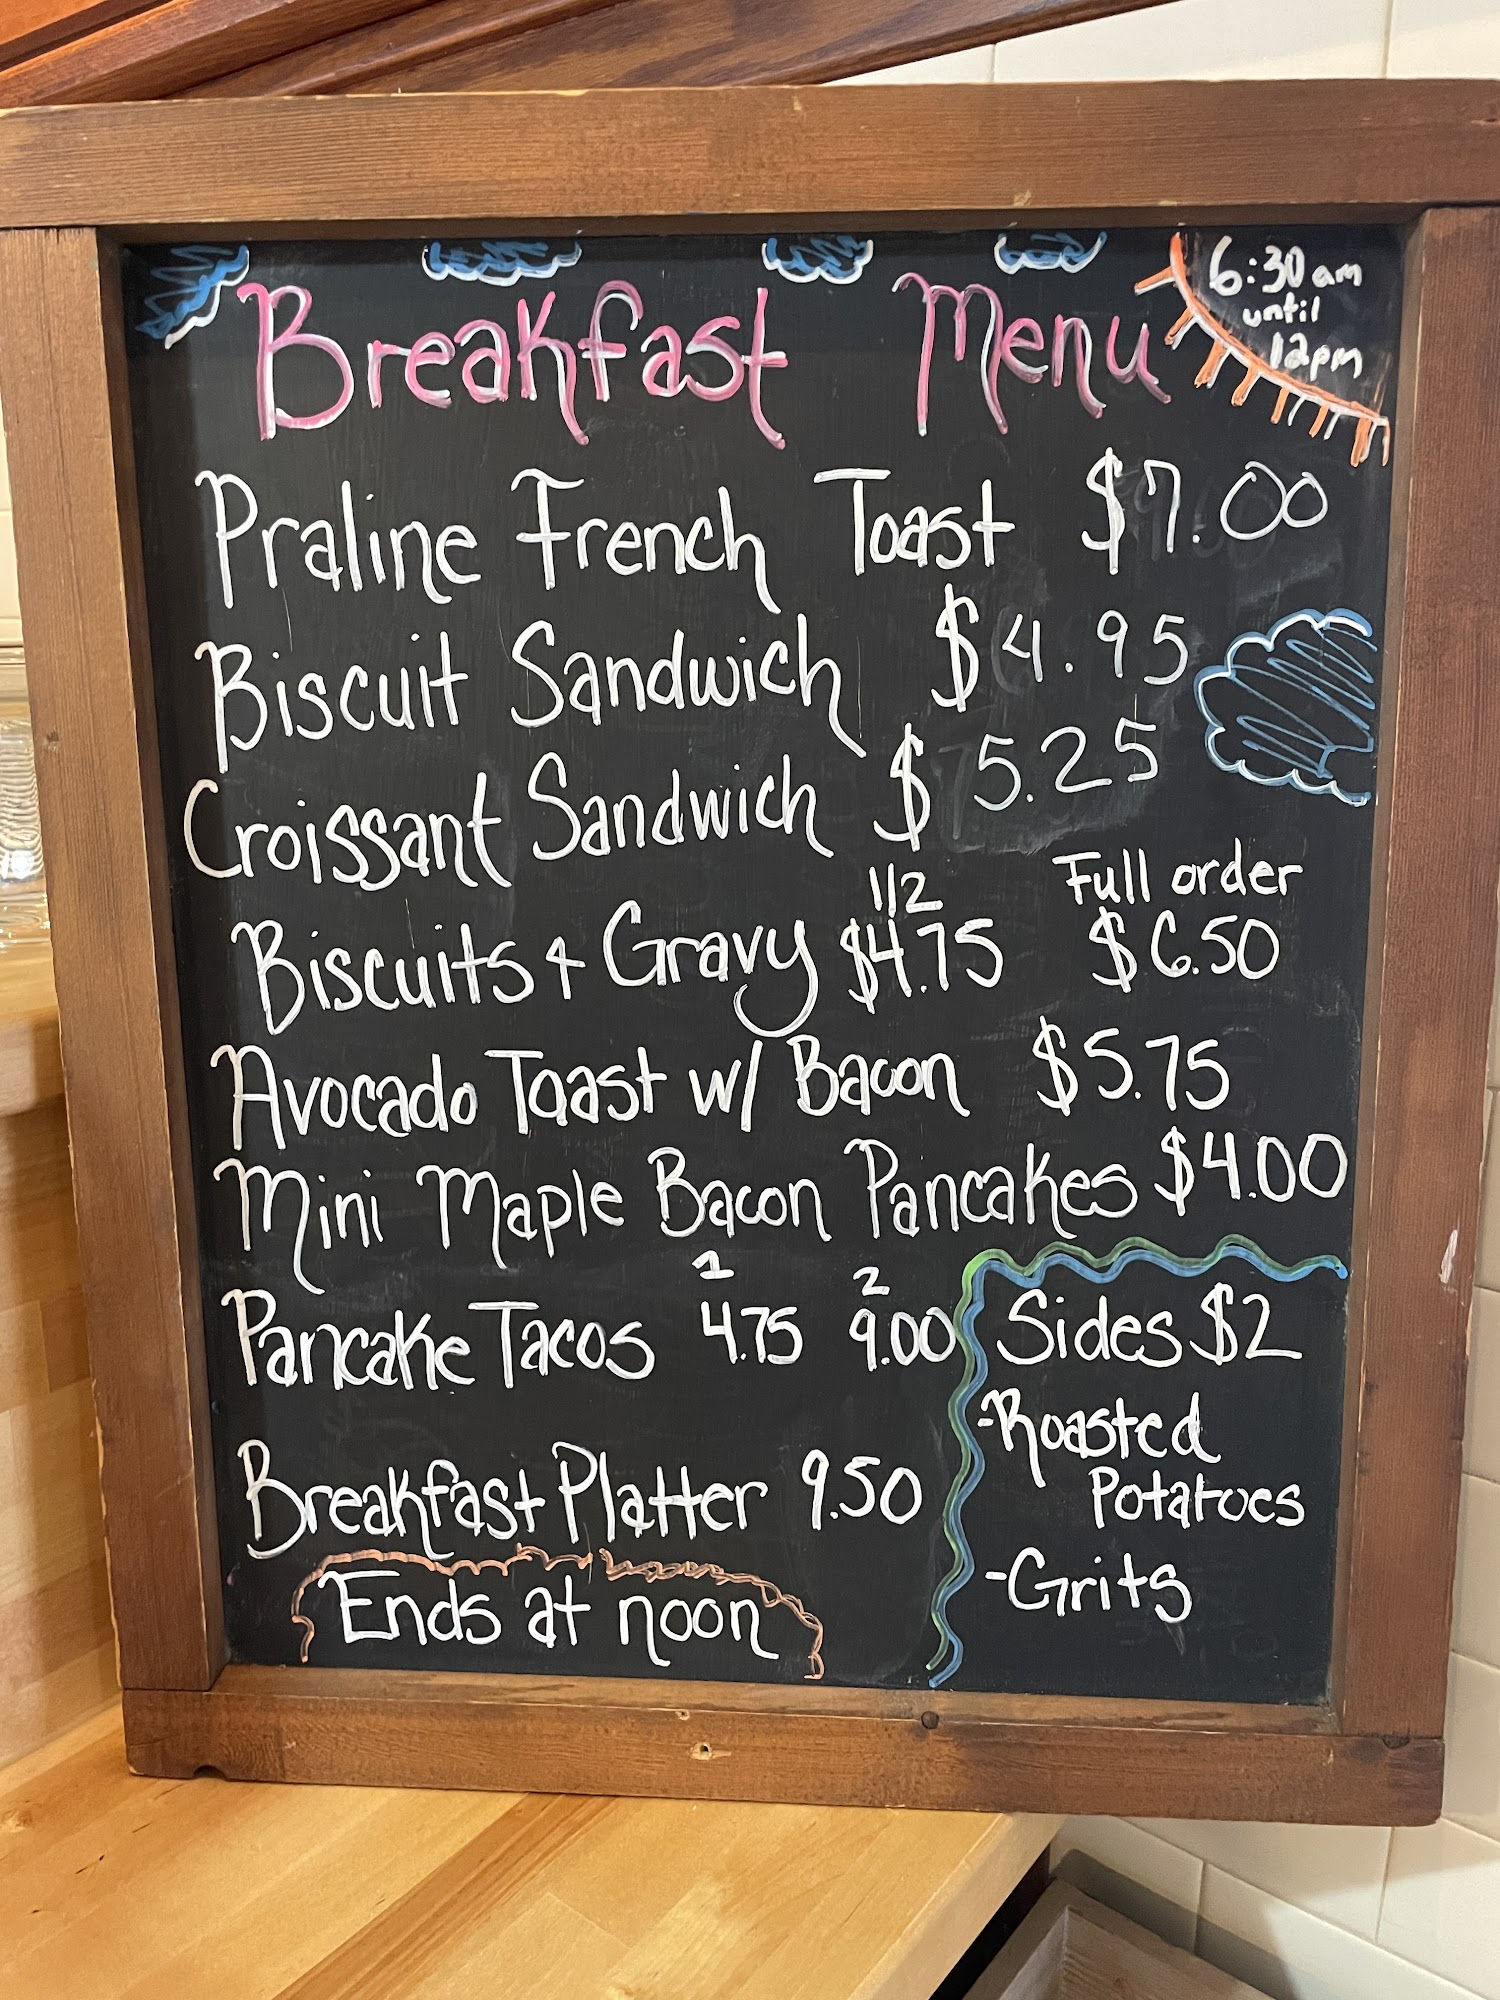 Breakfast Menu
6:30 am
until
12pm
Praline French Toast $7.00
Biscuit Sandwich $4.95
Croissant Sandwich $5.25
1/2 Full order
Biscuits + Gravy $4.75 $6.50
Avocado Toast w/ Bacon $5.75
Mini Maple Bacon Pancakes $4.00
1 2
Pancake Tacos 4.75 9.00
Breakfast Platter 9.50
Ends at noon
Sides $2
-Roasted
Potatoes
-Grits